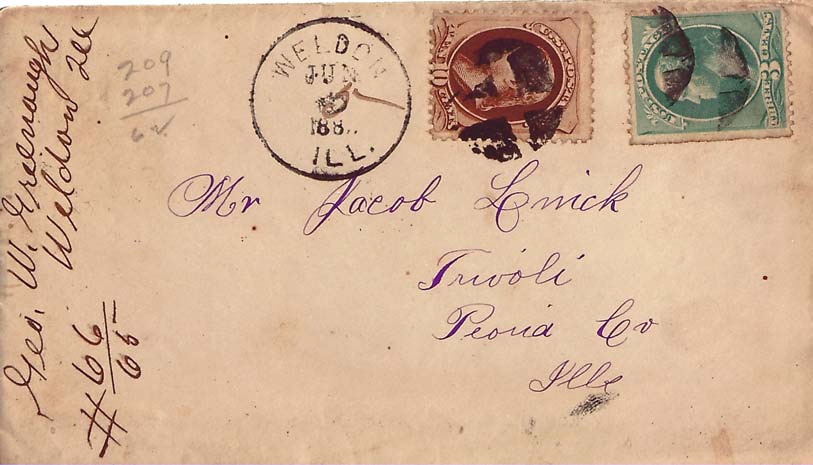 Geo. W. Greenough
Weldon Ill
#66
65
209
207
WELDON
JUN
188
ILL.
10
3
Mr Jacob Linick
Trivoli
Peoria Co
Ills